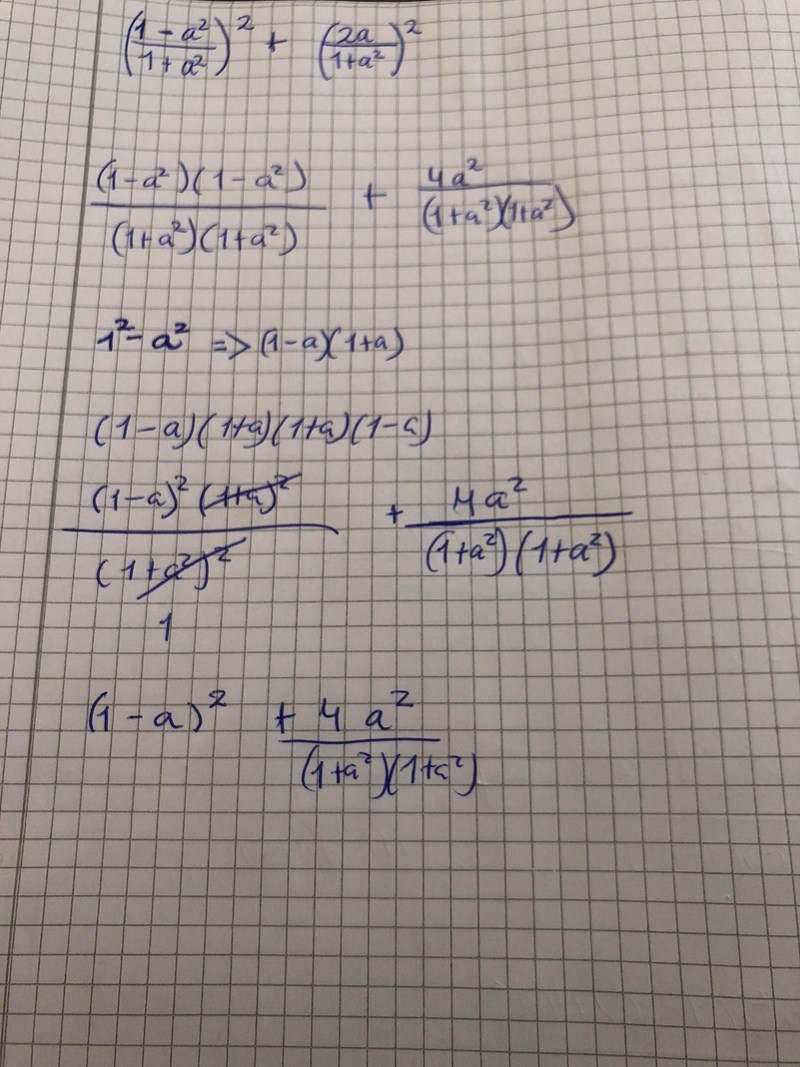 (1 - a² / 1 + a²)² + (2a / 1+a²)²
(1-a²)(1-a²) / (1+a²)(1+a²) + 4a² / (1+a²)(1+a²)
1² - a² => (1-a)(1+a)
(1-a)(1+a)(1+a)(1-a)
(1-a)² (1+a)² / (1+a²)² + 4a² / (1+a²)(1+a²)
1
(1-a)² + 4a² / (1+a²)(1+a²)